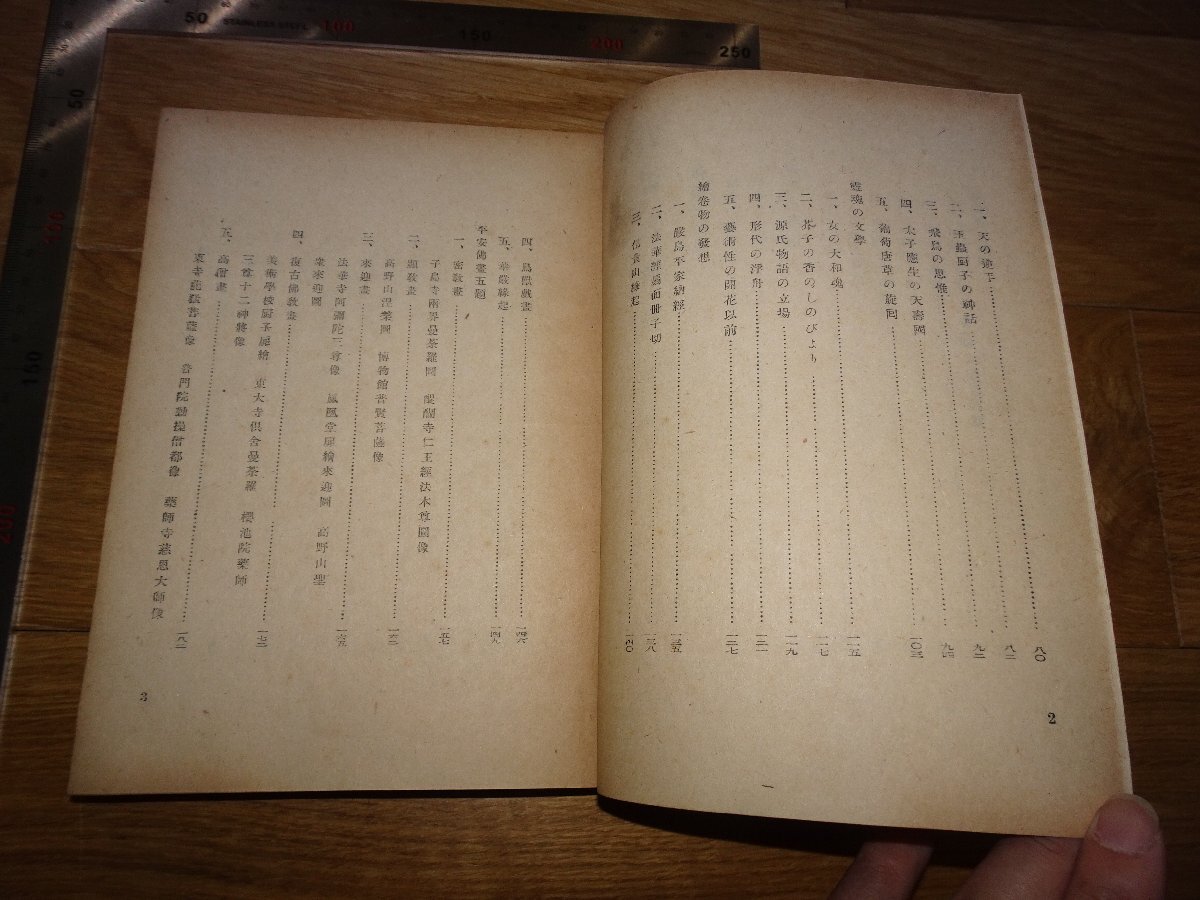 一、天の逆手……八〇
二、玉蟲厨子の神話……八二
三、飛鳥の思惟……九二
四、太子應生の天壽國……九四
五、葡萄唐草の旋回……一〇三
靈魂の文學
一、女の大和魂……一一五
二、芥子の香のしのびより……一一七
三、源氏物語の立場……一一九
四、形代の浮舟……一二一
五、藝術性の開花以前……一二七
繪卷物の發想
一、嚴島平家納經……一三五
二、法華經扇面册子切……一三八
三、信貴山緣起……一四〇
2
四、鳥獸戲畫……一四六
五、華嚴緣起……一四九
平安佛畫五題
一、密敎畫……一五七
子島寺兩界曼荼羅圖　醍醐寺仁王經法本尊圖像
二、顯敎畫……一六二
高野山涅槃圖　博物館普賢菩薩像
三、來迎畫……一六五
法華寺阿彌陀三尊像　鳳凰堂扉繪來迎圖　高野山聖
衆來迎圖
四、復古佛敎畫……一七二
美術學校厨子扉繪　東大寺倶舍曼荼羅　櫻池院藥師
三尊十二神將像
五、高僧畫……一八二
東寺龍猛菩薩像　普門院勤操僧都像　藥師寺慈恩大師像
3
50
STAINLESS STEEL
100
150
200
250
50
100
150
200